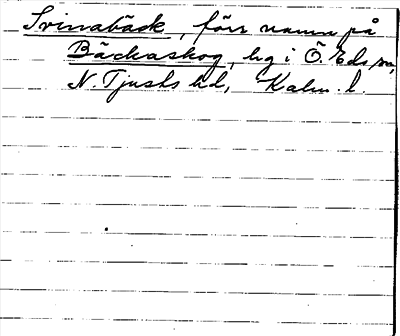 Svinabäck, förr namn på
Bäckaskog, hg i Ö. Eds sn,
N. Tjusts hd, Kalm. l.